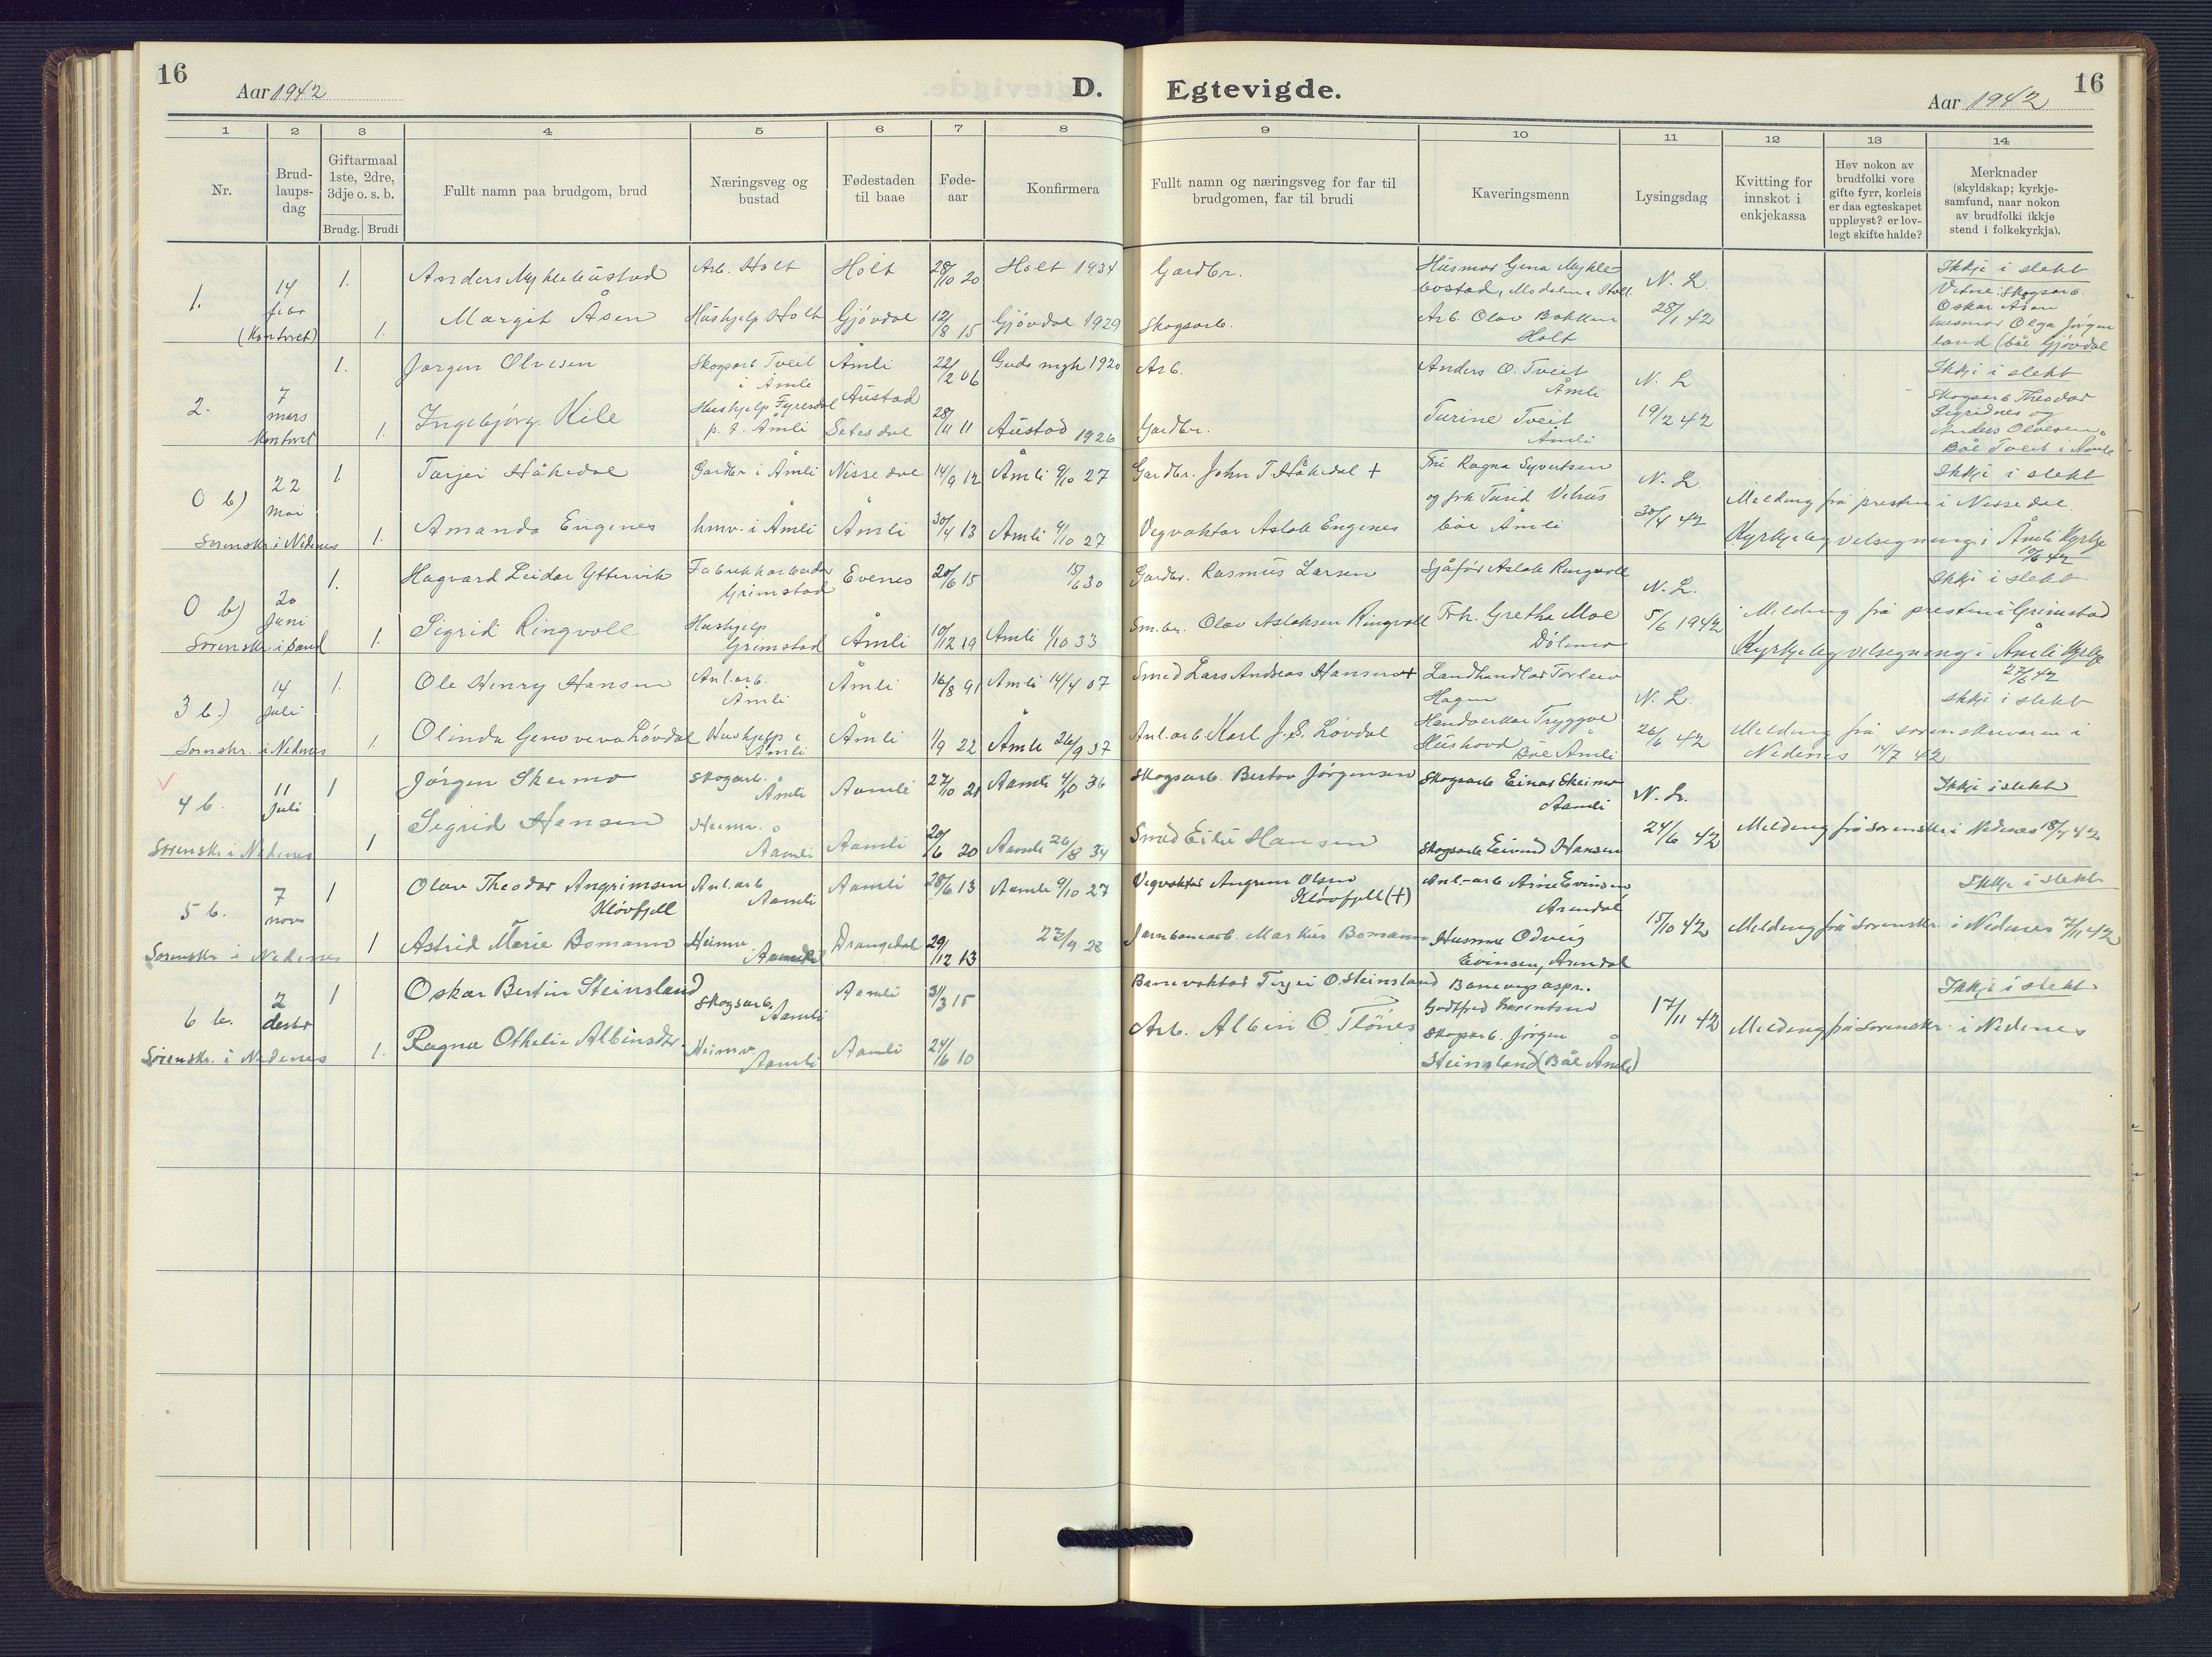 16
Aar 1942
D.
Egtevigde.
Aar 1942
16
1 2 3 4 5 6 7 8 9 10 11 12 13 14
Nr.
Brud-
laups-
dag
Giftarmaal
1ste, 2dre,
3dje o. s. b.
Brudg. Brudi
Fullt namn paa brudgom, brud
Næringsveg og
bustad
Fødestaden
til baae
Føde-
aar
Konfirmera
Fullt namn og næringsveg for far til
brudgomen, far til brudi
Kaveringsmenn
Lysingsdag
Kvitting for
innskot i
enkjekassa
Hev nokon av
brudfolki vore
gifte fyrr, korleis
er daa egteskapet
uppløyst? er lov-
legt skifte halde?
Merknader
(skyldskap; kyrkje-
samfund, naar nokon
av brudfolki ikkje
stend i folkekyrkja).
1.
14
febr
(Kontoret)
1.
Anders Myklebustad
Arb. Holt
Holt
28/10 20
Holt 1934
Gardbr.
Husmor Gena Mykle-
bostad,
N. L.
28/1 42
Ikkje i slekt
Vitne: Skogsarb.
Oskar Åsen
husmor Olga Jørgen
land (båe Gjøvdal
1.
Margit Åsen
Hushjelp Holt
Gjøvdal
12/8 15
Gjøvdal 1929
Skogsarb.
Arb. Olav Bakken
Holt
2.
7
mars
Kontoret
1.
Jørgen Olvesen
Skogsarb Tveit
i Åmli
Åmli
22/2 06
Guds mgh 1920
Arb.
Anders O. Tveit
Åmli
N. L
19/2 42
Ikkje i slekt
Skogsarb Theodor
Sigridnes og
Anders Olvesen.
Båe Tveit i Åmli
1.
Ingebjørg Kile
Hushjelp Fyresdal
p. t. Åmli
Austad
Setesdal
28/11 11
Austad 1926
Gardbr.
Turine Tveit
Åmli
0 b)
22
mai
Sorenskr. i Nedenes
1.
Tarjei Håkedal
Gardbr i Åmli
Nissedal
14/9 12
Åmli 9/10 27
Gardbr. John T. Håkedal +
Fru Ragna Syvertsen
og frk Turid Vehus
båe Åmli
N. L.
30/4 42
Ikkje i slekt
Melding frå presten i Nissedal
Kyrkjeleg velsegning i Åmli Kyrkje
10/6 42
1.
Amanda Engenes
hmv. i Åmli
Åmli
30/4 13
Åmli 9/10 27
Vegvaktar Aslak Engenes
0 b)
20
Juni
Sorenskr. i Sand
1.
Hagvard Leidar Yttervik
Fabrikkarbeidar
Grimstad
Evenes
20/6 15
15/6 30
Gardbr. Rasmus Larsen
Sjåfør Aslak Ringvoll
N. L.
5/6 1942
Ikkje i slekt
Melding frå presten i Grimstad
Kyrkjeleg velsegning i Åmli Kyrkje
27/6 42
1.
Sigrid Ringvoll
Hushjelp
Grimstad
Åmli
10/12 19
Åmli 1/10 33
Sm.br. Olav Aslaksen Ringvoll
Frk. Gretha Moe
Dølemo
3 b.)
14
Juli
Sorenskr. i Nedenes
1.
Ole Henry Hansen
Anl.arb.
Åmli
Åmli
16/8 91
Åmli 14/4 07
Smed Lars Andreas Hansen +
Landhandlar Torleiv
Hagen
N. L.
26/6 42
Ikkje i slekt
Melding frå sorenskrivaren i
Nedenes 14/7 42
1.
Olinda Genoveva Løvdal
Hushjelp i
Åmli
Åmli
1/9 22
Åmli 26/9 37
Anl.arb Karl J. S. Løvdal
Handverkar Tryggve
Hushovd Båe Åmli
4 b.
11
Juli
Sorenskr i Nedenes
1
Jørgen Skeimo
Skogarb.
Åmli
Aamli
27/10 21
Aamli 4/10 36
Skogsarb. Bertov Jørgensen
Skogsarb Einar Skeimo
Aamli
N. L.
24/6 42
Ikkje i slekt
Melding frå sorenskr i Nedenes 15/7 42
1
Sigrid Hansen
Heimv.
Aamli
Aamli
20/6 20
Aamli 26/8 34
Smed Eiki Hansen
Skogsarb Eivind Hansen
5 b.
7
nov
Sorenskr i Nedenes
1
Olav Theodor Angrimsen
Kløvfjell
Anl.arb
Aamli
Aamli
28/6 13
Aamli 9/10 27
Vegvaktar Angrim Olsen
Kløvfjell (+)
Anl.-arb Arne Evinsen
Arendal
15/10 42
Ikkje i slekt
Melding frå Sorenskr. i Nedenes 7/11 42
1
Astrid Marie Bomann
Heimv.
Aamli
Drangedal
29/12 13
23/9 28
Jarnbanearb. Markus Bomann
Husmor Odveig
Evinsen, Arendal
6 b.
2
desbr
Sorenskr. i Nedenes
1
Oskar Bertin Steinsland
Skogsarb.
Aamli
Aamli
31/3 15
Banevaktar Terjei O. Steinsland
Banevaspr.
Godtfred Barentsen
17/11 42
Ikkje i slekt
Melding frå Sorenskr. i Nedenes
1.
Ragna Othelie Albinsdtr.
Heimv.
Aamli
Aamli
24/6 10
Arb. Albin O. Flönes
Skogsarb. Jørgen
Steinsland (Båe Åmli)